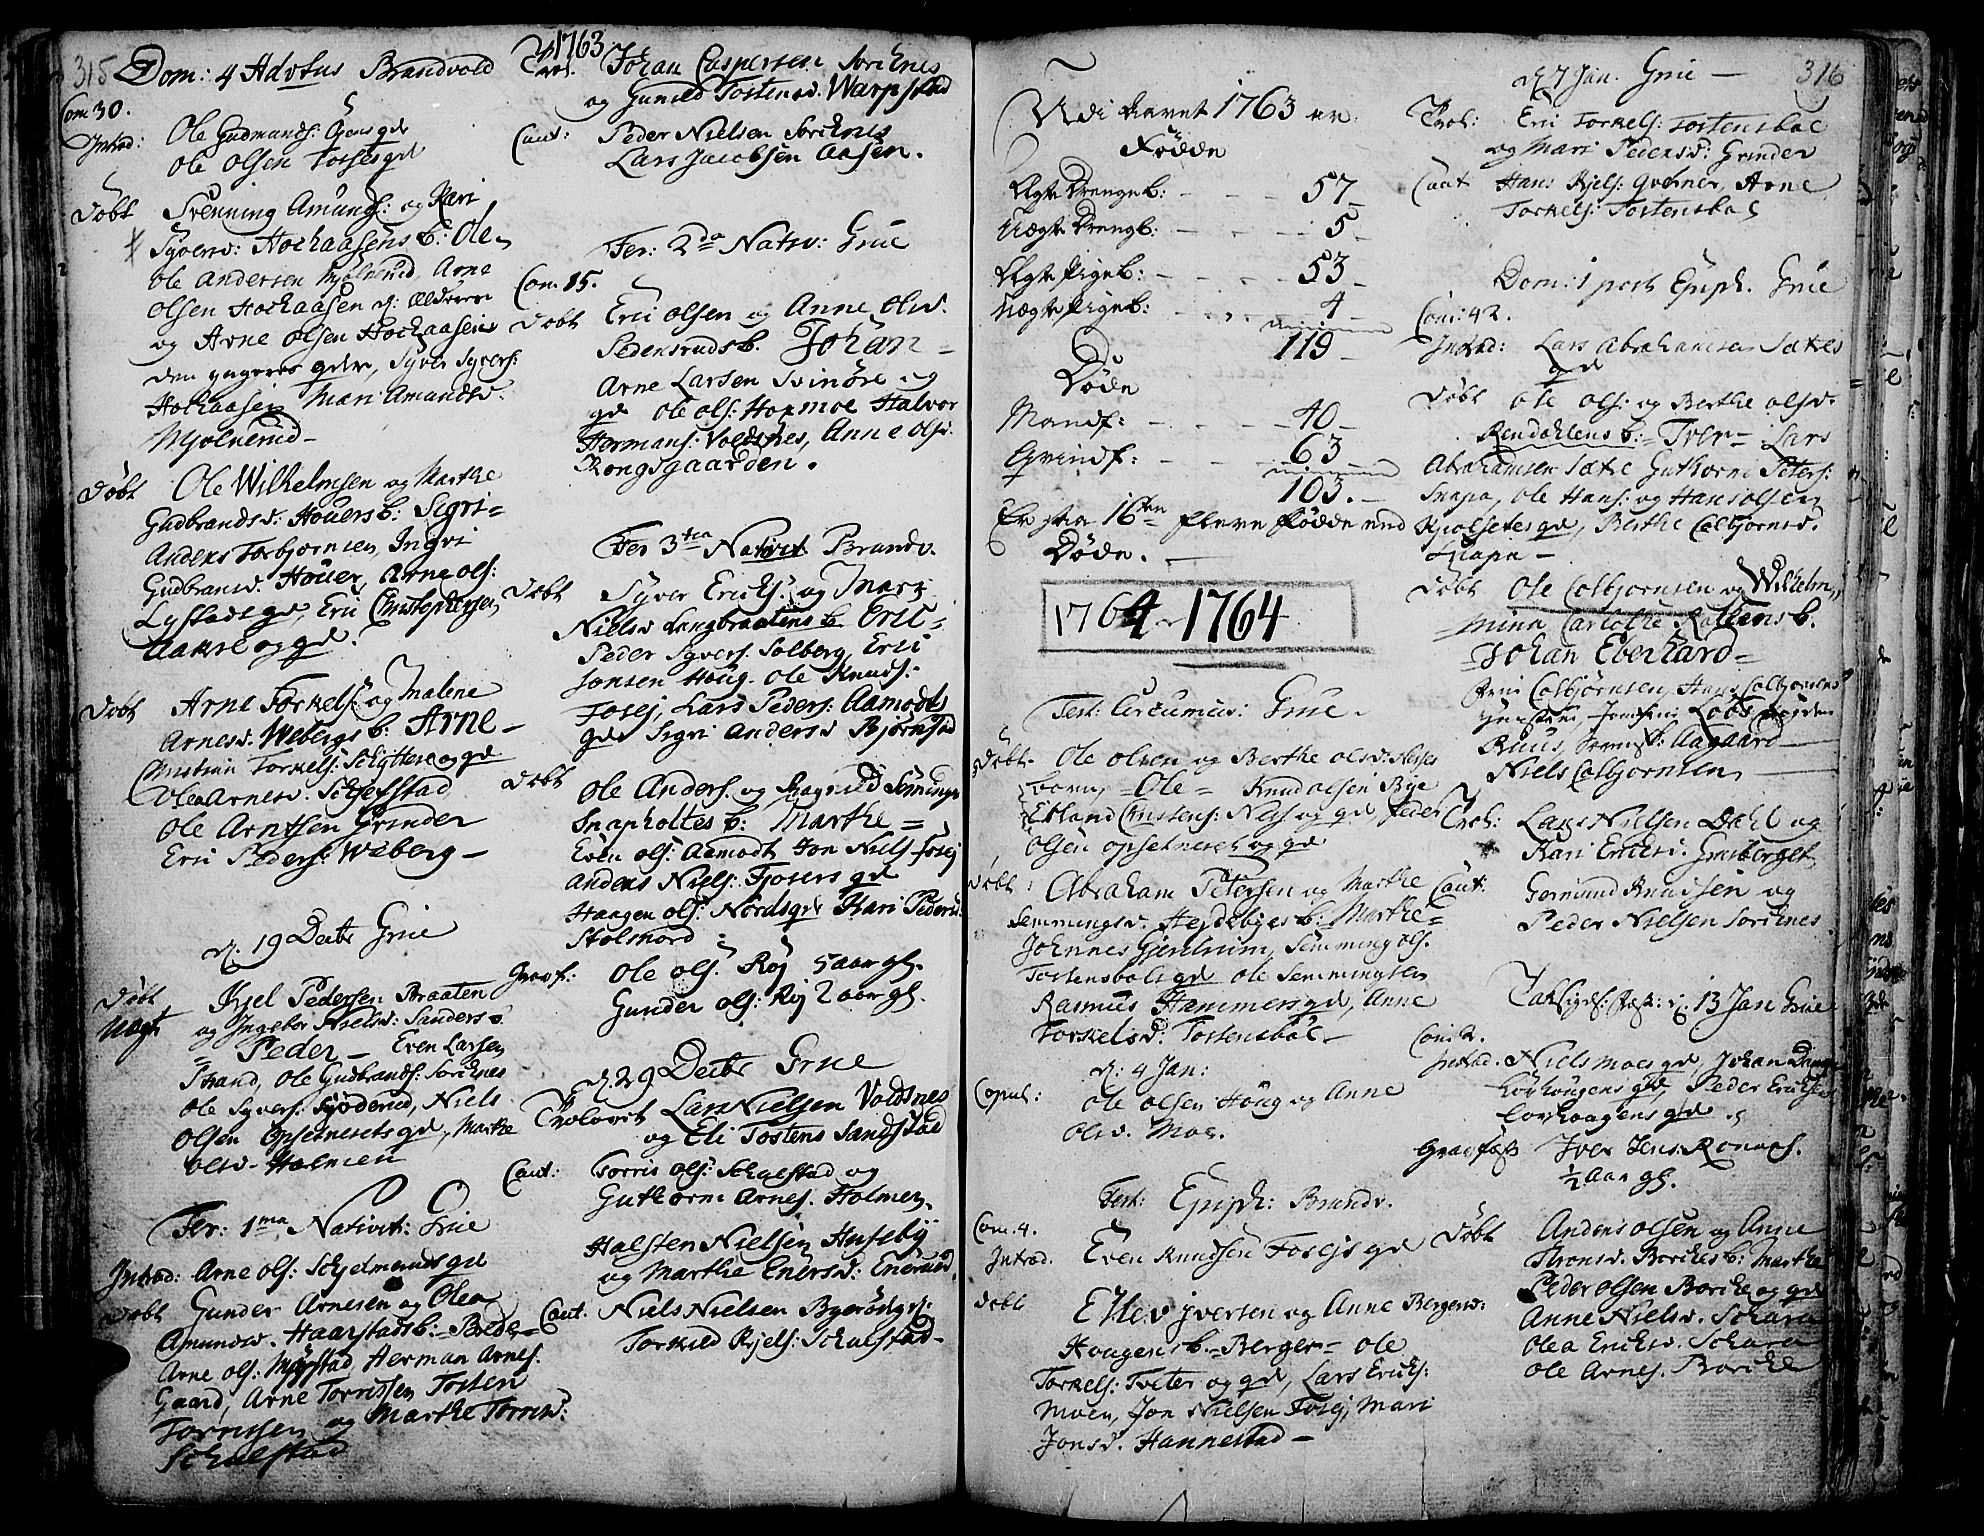 315
Dom: 4 Advtus Brandvold
Com 30.
Introd: Ole Gudmands: Opens gd
Ole Olsen Fosses gd
Døbt Svenning Amunds: og Kari
Syversd: Hochaasens b: Ole
Ole Andersen Mjølnerud Arne
Olsen Hochaasen d: Ældere
og Arne Olsen Hochaasen
den yngeres gdr, Syver Syvers:
Hochaasen Mari Amundsd:
Mjolnerud –
Døbt Ole Wilhelmsen og Marthe
Gudbrandsd: Houers b: Sigri =
Anders Torbjornsen, Ingri
Gudbransd: Houer, Arne Ols:
Lystads gd, Eric Christophersen
og gd.
Døbt Arne Torkels: og Malene
Arnesd. Webergs b: Arne –
Christian Torkels: Schyttere og gd
Olea Arnesd. Schjefstad
Ole Arntsen Grinder
Eric Peders: Weberg –
d. 19 Decbr Grue
Døbt Kjel Pedersen Braaten
Uægt og Ingebor Nielsd: Sanders b.
= Peder – Even Larsen
Strand, Ole Gudbrands: Sorichnes
Ole Syvers: Sjøderud, Niels
Olsen Opsetnesets gd, Marthe
Olsd – Holmen
Fer: 1ma Nativit: Grue
Introd: Arne Ols: Schjelmeruds gd
Døbt Gunder Arnesen og Olea
Amundsd. Haarstads b: – Peder –
Arne Ols: Møystad, Herman Arnes.
Gaard, Arne Torrissen, Tosten
Torrissen og Marthe Torrisd:
Schulstad
1763
Trol. Johan Caspersen Sorichnes
og Gunild Tostensd. Warpstad
Caut: Peder Nielsen Sorichnes
Lars Jacobsen Aasen.
Fer: 2da Nativ: Grue
Com. 15.
Døbt Eric Olsen og Anne Olsd.
Pedersruds b. Johan –
Arne Larsen Svinøre og
gd Ole Ols: Hopmoe Halvor
Hermans: Voldsnes, Anne Olsd.
Kongsgaarden.
Fer 3tia Nativit. Brandv.
Døbt Syver Ericks: og Mari
Nielsd Langbraatens b. Eric =
Peder Syvers. Solberg, Eric
Jonsen Houg. Ole Knuds:
Fosej, Lars Peders: Aamodts
gd Sigri Andersd Bjørnstad
Døbt Ole Anders. og Ragnild Sem̄ings
Snapholtes b: Marthe =
Even Ols: Aamodt, Jon Niels. Fosej
Anders Niels: Fjosers gd
Haagen Ols: Nords gd Kari Pedersd
Stolsnord
Gravf: Ole Ols. Røj 5 aar gl.
Gunder Ols: Røj 2 aar gl.
d. 29 Decbr Grue
Trolovit Lars Nielsen Voldsnes
og Eli Tostens Sandstad
Caut: Torris Ols: Schulstad og
Guthorm Arnes. Holmen.
Halsten Nielsen Huseby
og Marthe Enersd: Enerud.
Caut. Niels Nielsen Byerød gd:
Torkild Kjels: Schulstad –
Udi Aaret 1763 er
Fødde
Ægte Drengeb: – – – 57 –
Uægte Drengb: – – – 5 –
Ægte Pigeb: – – – 53 –
Uægte Pigeb: – – – 4 –
119 –
Døde
Mandf: – – – 40 –
Qvindf: – – – 63
103. –
Er altsaa 16ten flere fødde end
Døde. –
1764 – 1764
Fest: Circumcis: Grue.
Døbt. Ole Olsen og Berthe Olsd. Nesses
barn, – Ole – Knud Olsen Bye
Erland Christens: Ness og gd Peder
Olsen Opsetneset og gd
Døbt: Abraham Petersen og Marthe
Semmingsd. Hejdebyes b: Marthe =
Johnnes Gjerdrum, Semming Ols.
Tostensboli gd Ole Semmingsen
Rasmus Hammers gd, Anne
Torkelsd: Tostensbøl –
d: 4 Jan:
Copul: Ole Olsen Houg og Anne
Olsd. Moe.
Fest: Epiph: Brandv.
Com. 4.
Introd. Even Knudsen Fosejs gd
Døbt Ellev Iversen og Anne Bergersd:
Hougens b. – Berger – Ole
Torkels: Tveter og gd, Lars Ericks:
Moen, Jon Nielsen Fosej, Mari
Jonsd. Hannestad –
316
d. 7 Jan. Grue –
Trol: Eric Torkels: Tostensbøl
og Mari Pedersd: Grinder
Caut Hans Kjels: Qverner, Arne
Torkels: Tostensbøl
Dom: 1 post Epiph. Grue
Com: 42.
Introd: Lars Abrahamsen Sætres
gd
Døbt Ole Ols: og Berthe Olsd.
Rendahlens b: – Iver – Lars
Abrahamsen Sætre Guthorm Peters:
Snapa, Ole Hans: og Hans Olsen
Kjolsetes gd, Berthe Colbjornsd.
Snapa –
Døbt Ole Colbjornsen og Wilhelm,,
mina Carlothe Rolfsens b.
– Johan Eberhard –
Colbjørnsen, Hans Colbjørnsens
Loos
Ruus, b: Aagaard –
Niels Colbjornsen –
Trol: Lars Nielsen Dahl og
Kari Ericksd: Grasberget
Caut: Gormund Knudsen og
Peder Nielsen Sorichnes
Taksigels: Fest: d. 13 Jan Grue
Com: 2.
Introd. Niels Moes gd, Johan
gd, Peder Ericksen
gd.
Gravfæst Iver Jens: Ronaas.
½ Aar gl.
Døbt Anders Olsen og Anne
Thronsd. Boriches b: Marthe
Peder Olsen Boriche og gd
Anne Nielsd. Schara
Olea Ericksd. Schara
Ole Arnes. Boriche